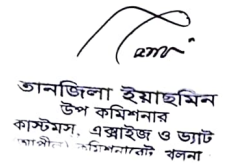 তানজিলা ইয়াছমিন
উপ কমিশনার
কাস্টমস, এক্সাইজ ও ভ্যাট
(আপীল) কমিশনারেট, খুলনা